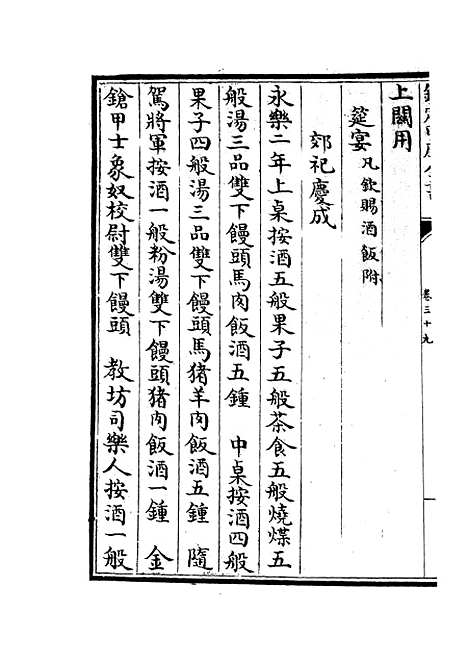 上關用
筵宴凡欽賜酒飯附
郊祀慶成
永樂二年上桌按酒五般果子五般茶食五般燒煠五
般湯三品雙下饅頭馬肉飯酒五鍾 中桌按酒四般
果子四般湯三品雙下饅頭馬猪羊肉飯酒五鍾 隨
駕將軍按酒一般粉湯雙下饅頭猪肉飯酒一鍾 金
鎗甲士象奴校尉雙下饅頭 教坊司樂人按酒一般
卷三十九